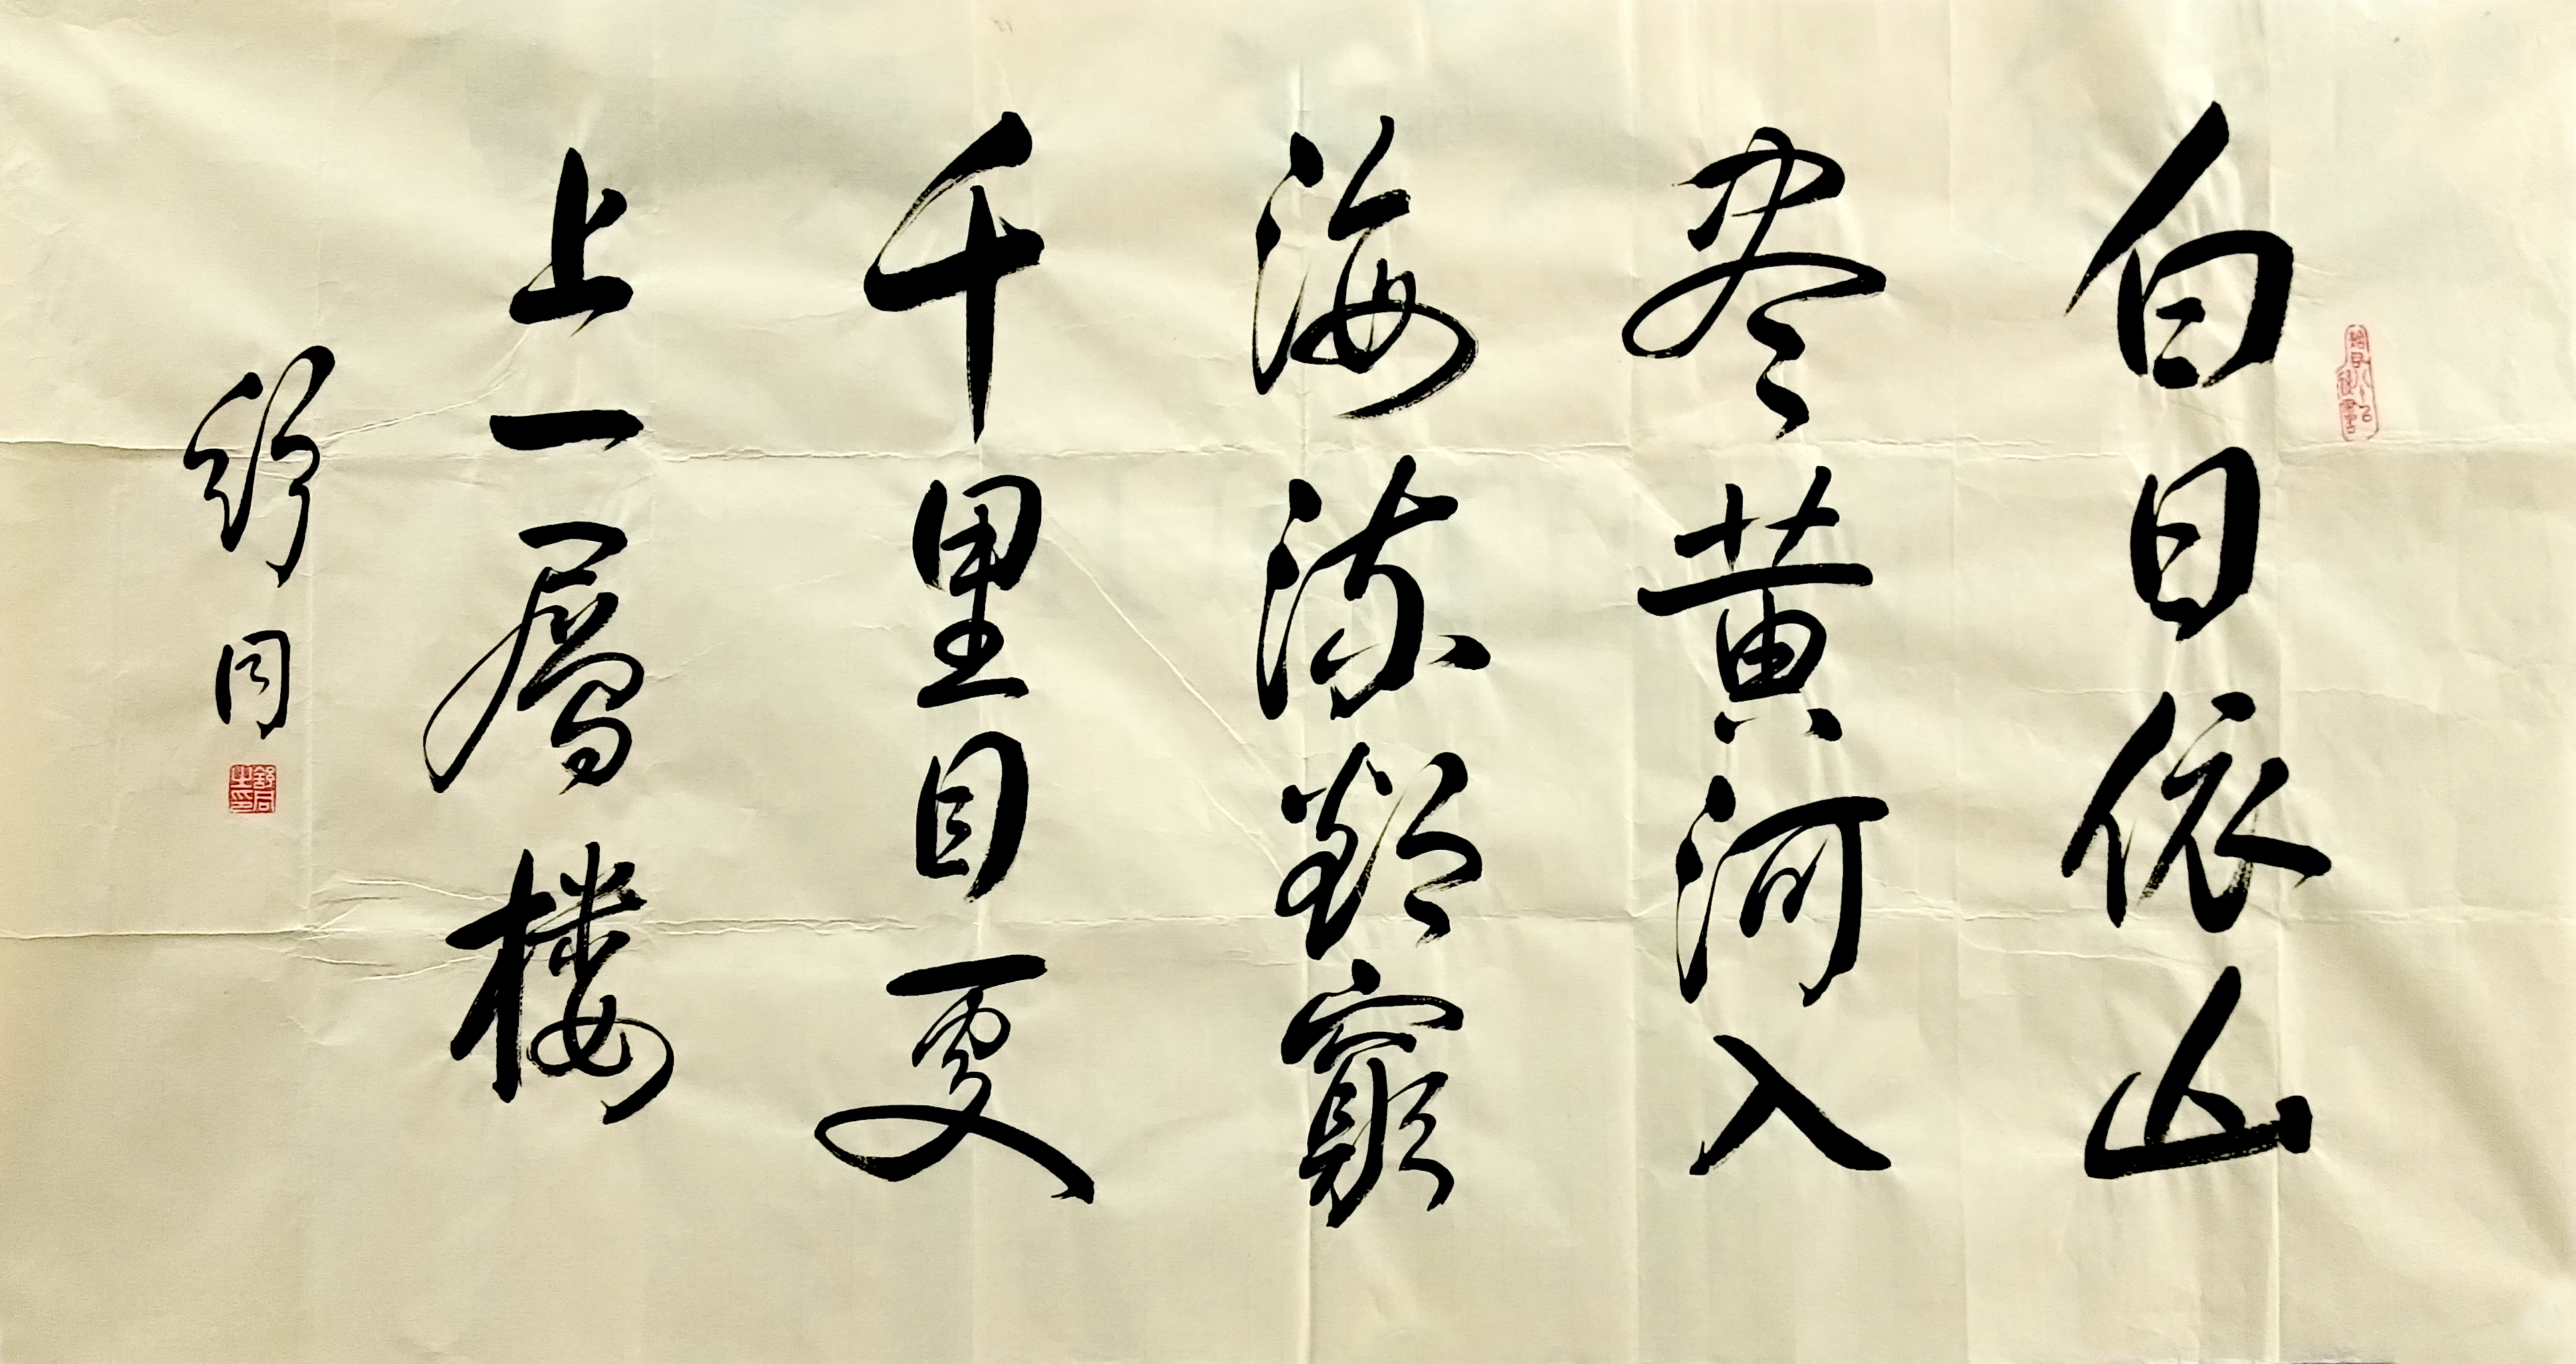 白日依山
尽黄河入
海流欲窮
千里目更
上一層樓
舒同
舒同之印